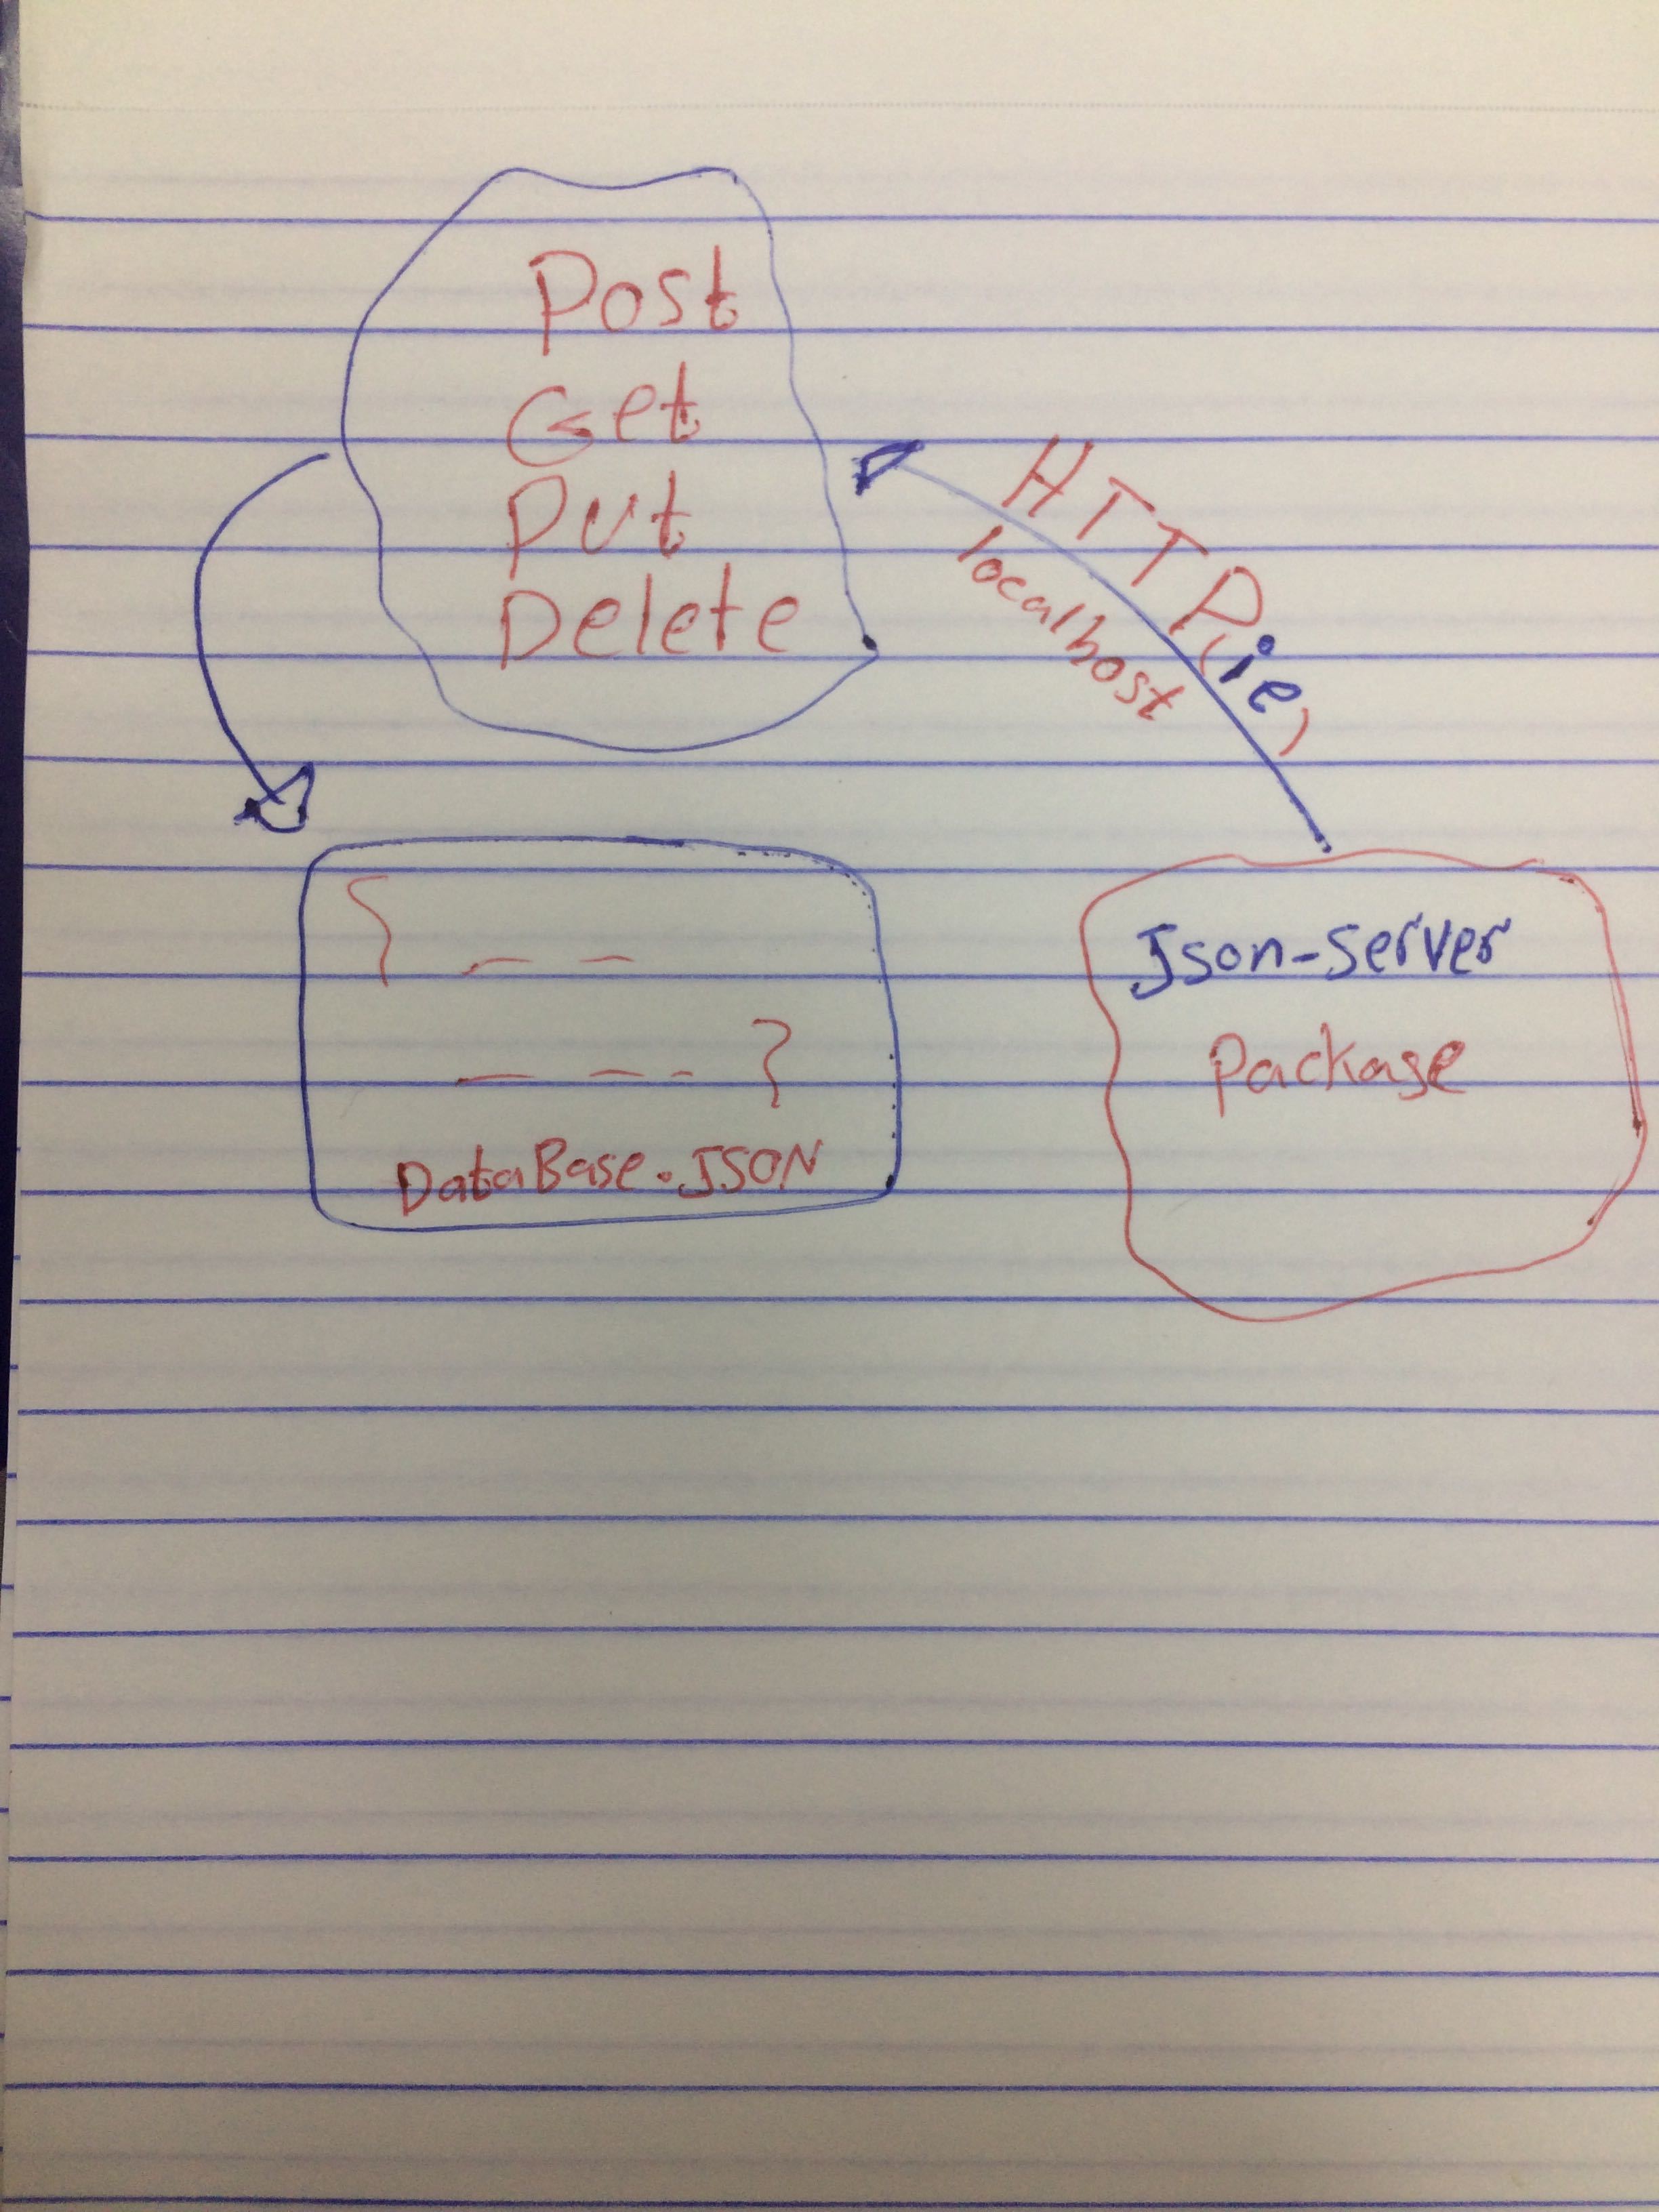 Post
Get
Put
Delete
HTTP(ie)
localhost
{ — —
— — - }
DataBase.JSON
Json-server
Package